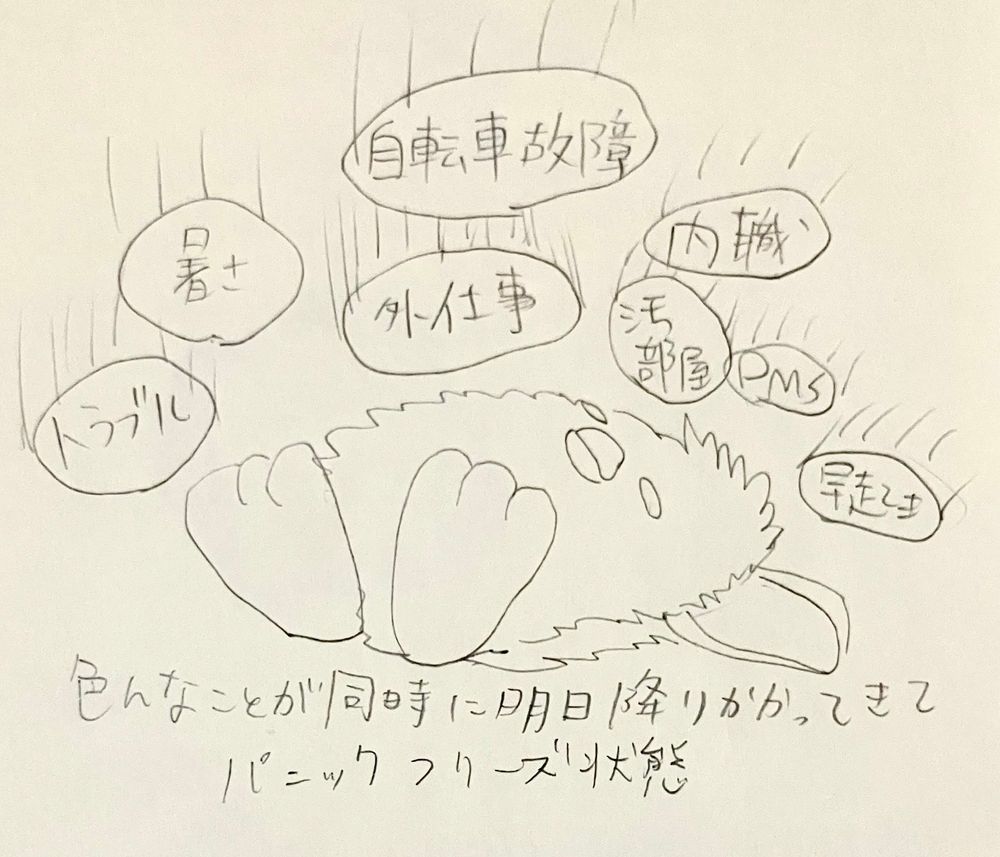 自転車故障
暑さ
外仕事
内職
汚
部屋
PMS
トラブル
早起き
色んなことが同時に明日降りかかってきて
パニックフリーズ状態